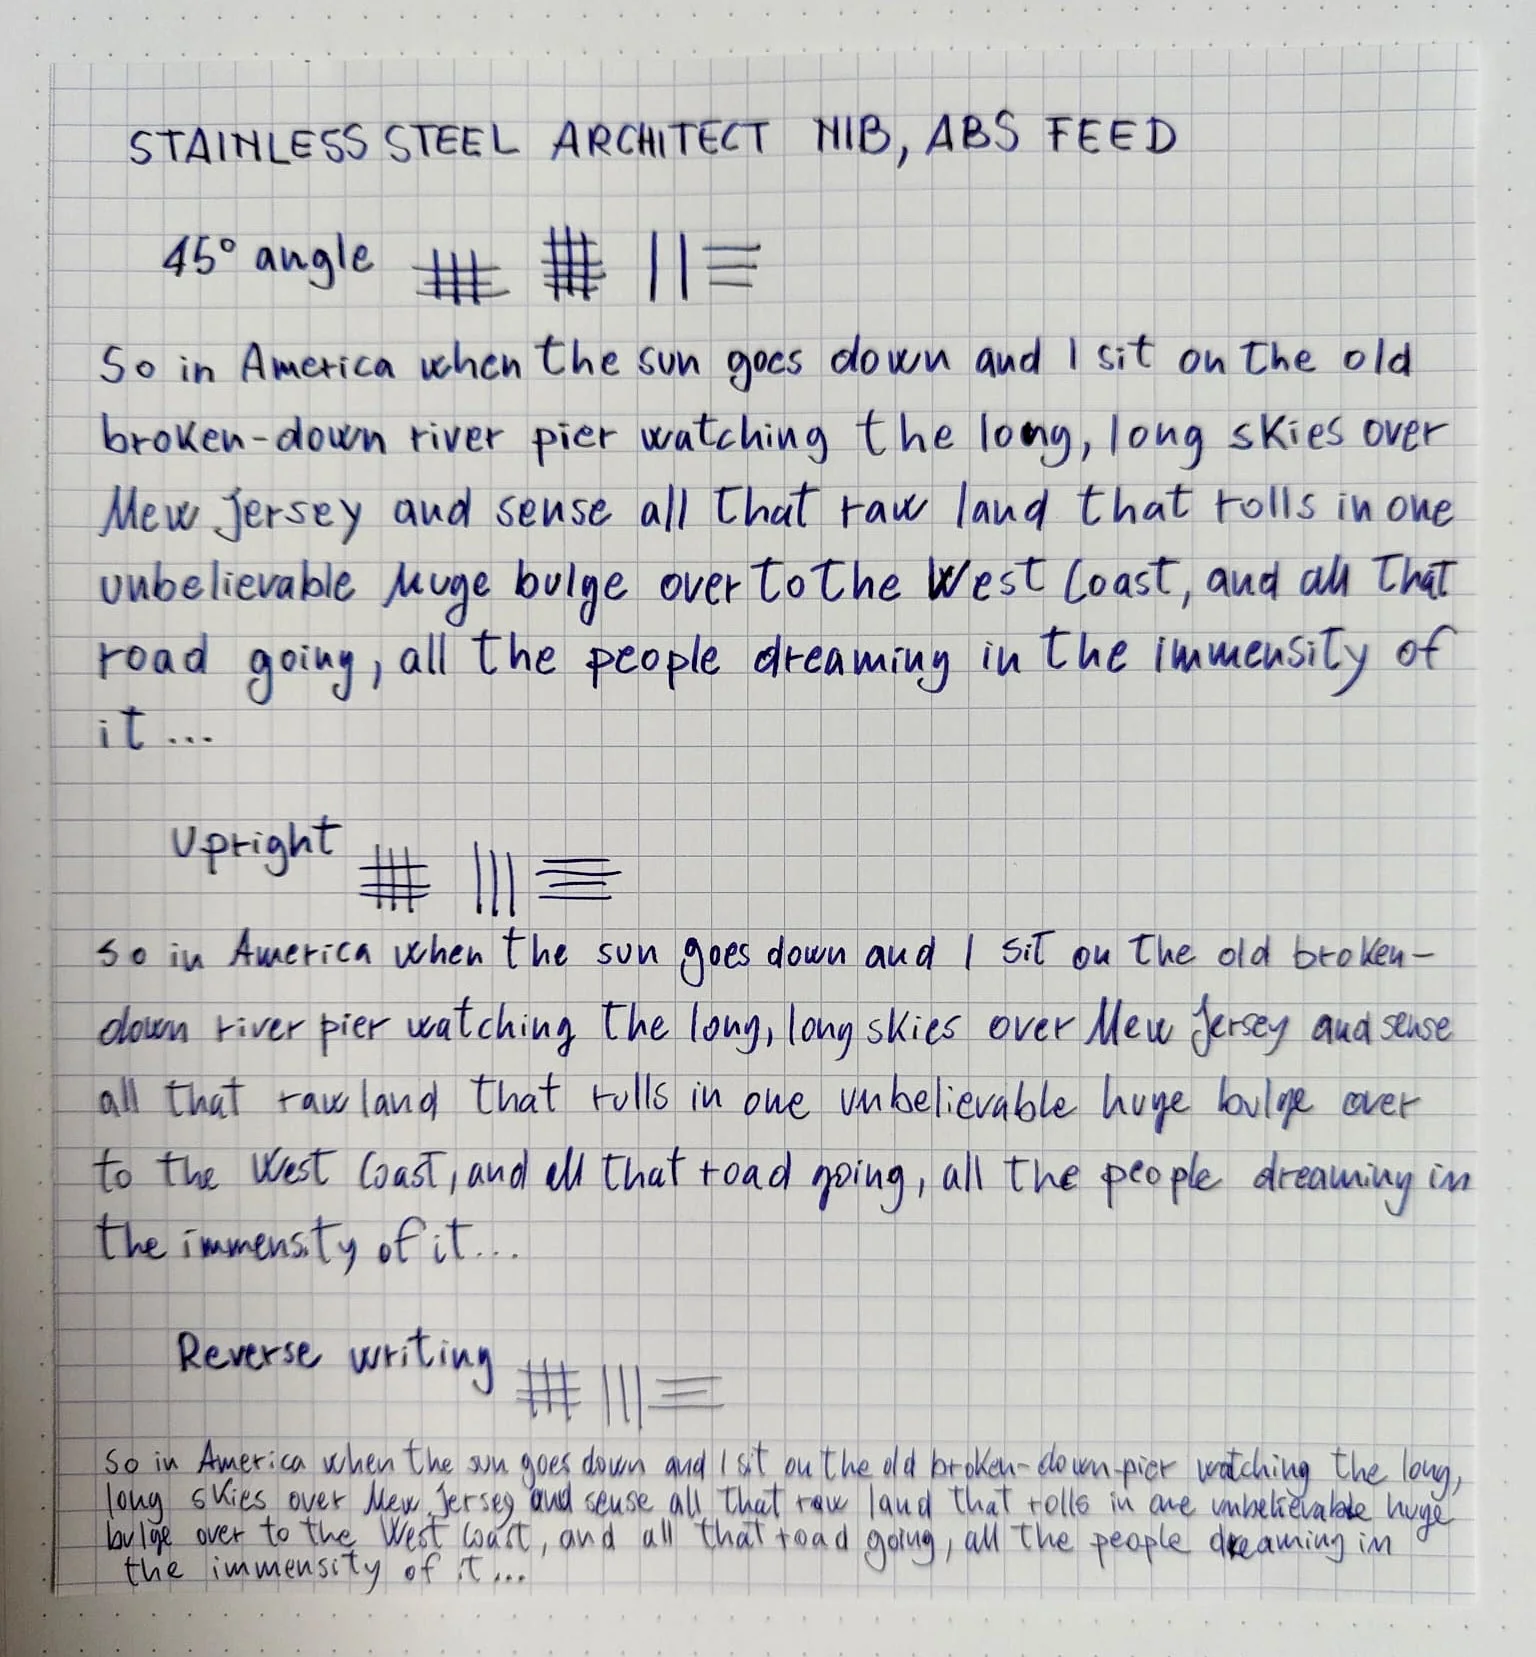 STAINLESS STEEL ARCHITECT NIB, ABS FEED
45° angle
So in America when the sun goes down and I sit on the old
broken-down river pier watching the long, long skies over
New Jersey and sense all that raw land that rolls in one
unbelievable huge bulge over to the West Coast, and all that
road going, all the people dreaming in the immensity of
it ...
Upright
So in America when the sun goes down and I sit on the old broken-
down river pier watching the long, long skies over New Jersey and sense
all that raw land that rolls in one unbelievable huge bulge over
to the West Coast, and all that road going, all the people dreaming in
the immensity of it...
Reverse writing
So in America when the sun goes down and I sit on the old broken-down pier watching the long,
long skies over New Jersey and sense all that raw land that rolls in one unbelievable huge
bulge over to the West Coast, and all that road going, all the people dreaming in
the immensity of it...